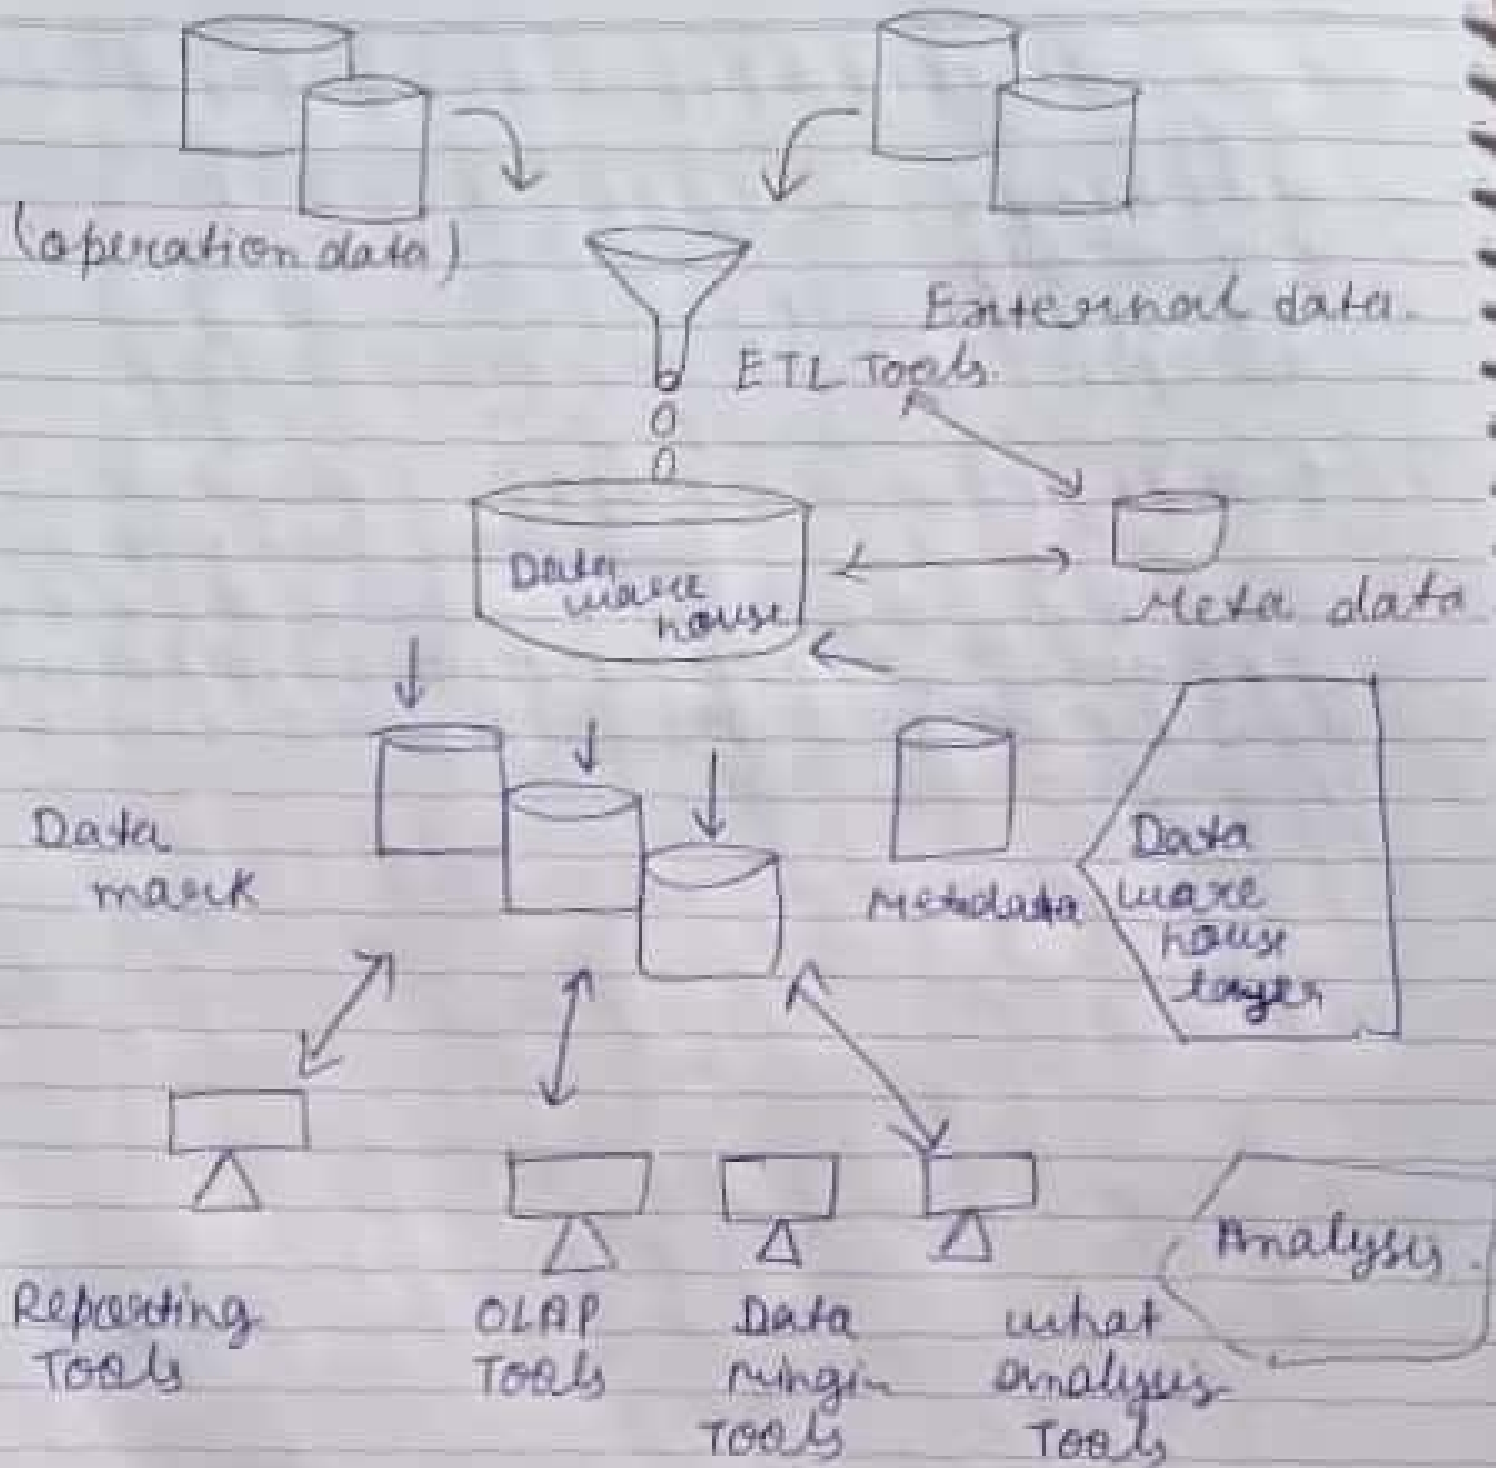 (operation data)
External data.
ETL Tools.
Data
ware
house
Meta data
Data
mark
Metadata
Data
ware
house
layer
Analysis.
Reporting
Tools
OLAP
Tools
Data
mingin
Tools
what
analysis
Tools